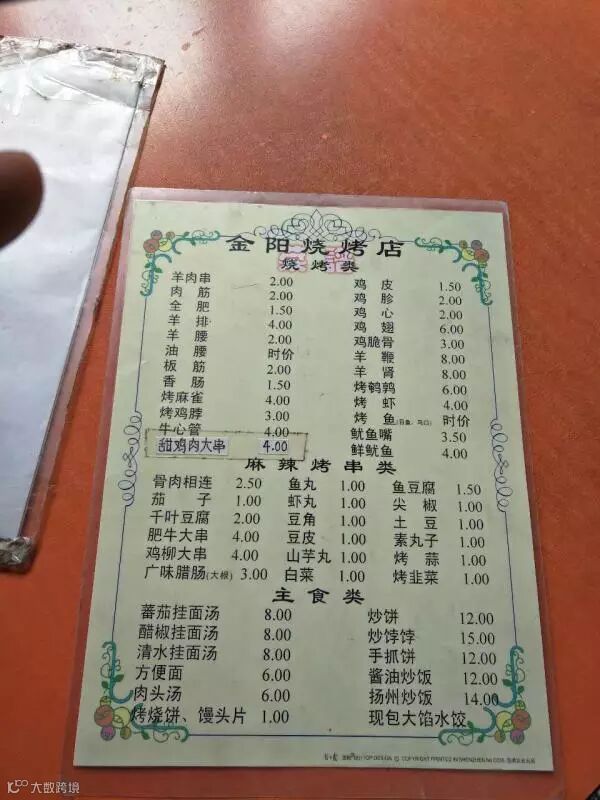 金阳烧烤店
烧烤类
羊肉串 2.00 鸡皮 1.50
肉筋 2.00 鸡胗 2.00
全肥 1.50 鸡心 2.00
羊排 4.00 鸡翅 6.00
羊腰 2.00 鸡脆骨 3.00
油腰 时价 羊鞭 8.00
板筋 2.00 羊肾 8.00
香肠 1.50 烤鹌鹑 6.00
烤麻雀 4.00 烤虾 4.00
烤鸡脖 3.00 烤鱼 时价
牛心管 4.00 鱿鱼嘴 3.50
甜鸡肉大串 4.00 鲜鱿鱼 4.00
麻辣烤串类
骨肉相连 2.50 鱼丸 1.00 鱼豆腐 1.50
茄子 1.00 虾丸 1.00 尖椒 1.00
千叶豆腐 2.00 豆角 1.00 土豆 1.00
肥牛大串 4.00 豆皮 1.00 素丸子 1.00
鸡柳大串 4.00 山芋丸 1.00 烤蒜 1.00
广味腊肠(大根) 3.00 白菜 1.00 烤韭菜 1.00
主食类
蕃茄挂面汤 8.00 炒饼 12.00
醋椒挂面汤 8.00 炒饽饽 15.00
清水挂面汤 8.00 手抓饼 12.00
方便面 6.00 酱油炒饭 12.00
肉头汤 6.00 扬州炒饭 14.00
烤烧饼、馒头片 1.00 现包大馅水饺
大数跨境